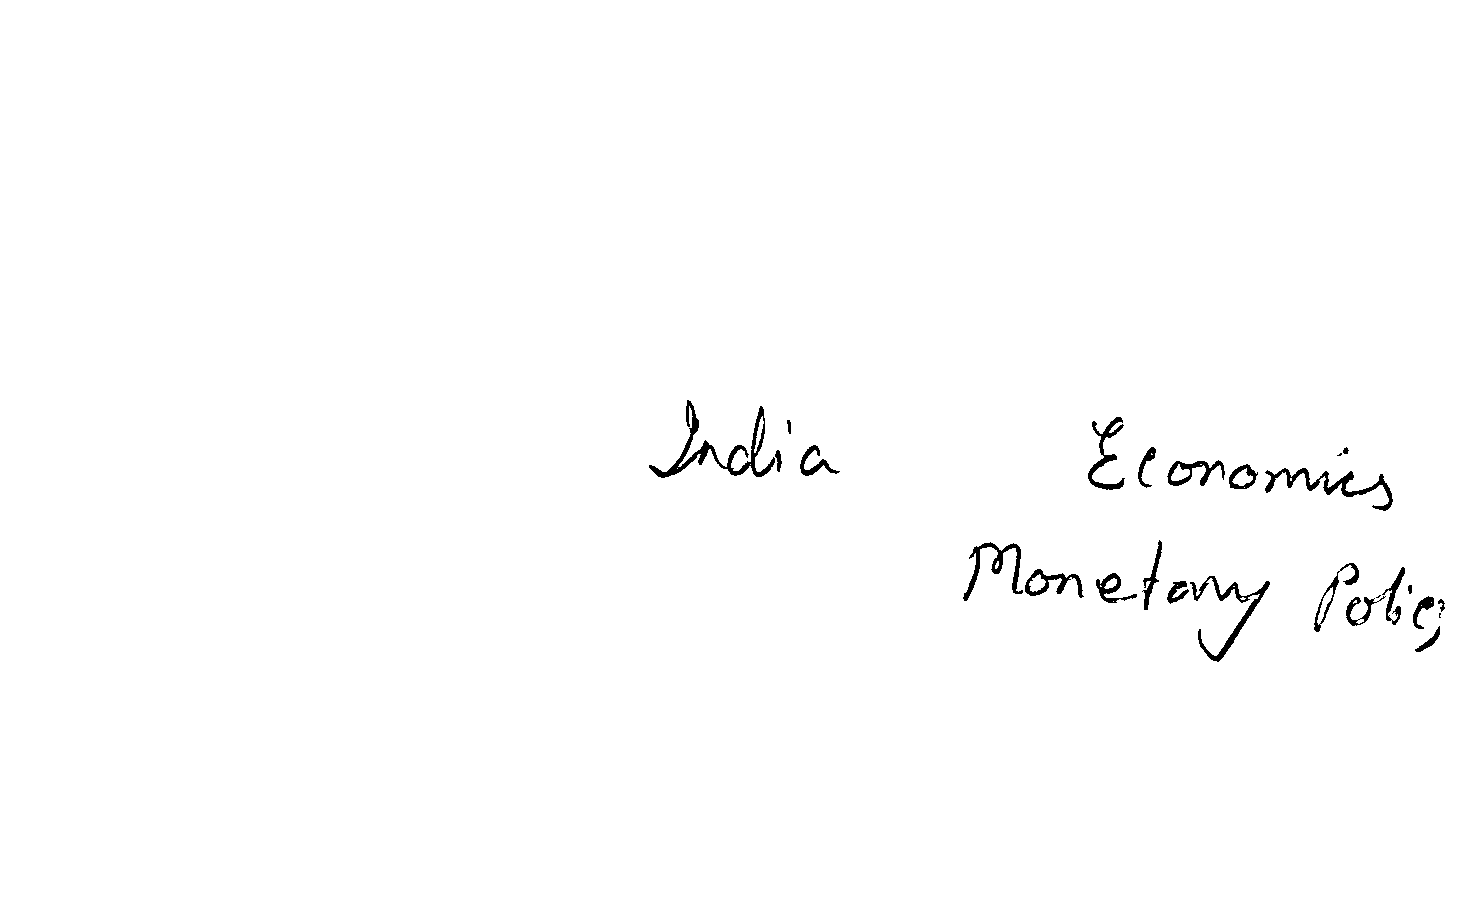 India Economics
Monetary Policy